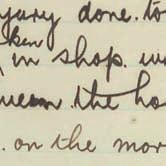 jury done. to
ken
in shop. w
the ho
. on the mor